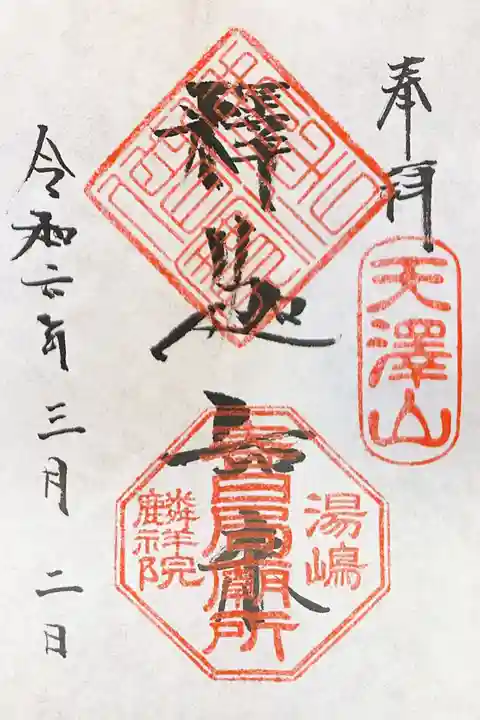 奉拝
天澤山
釋迦如来
湯嶋
春日局廟所
麟祥院
令和六年三月二日